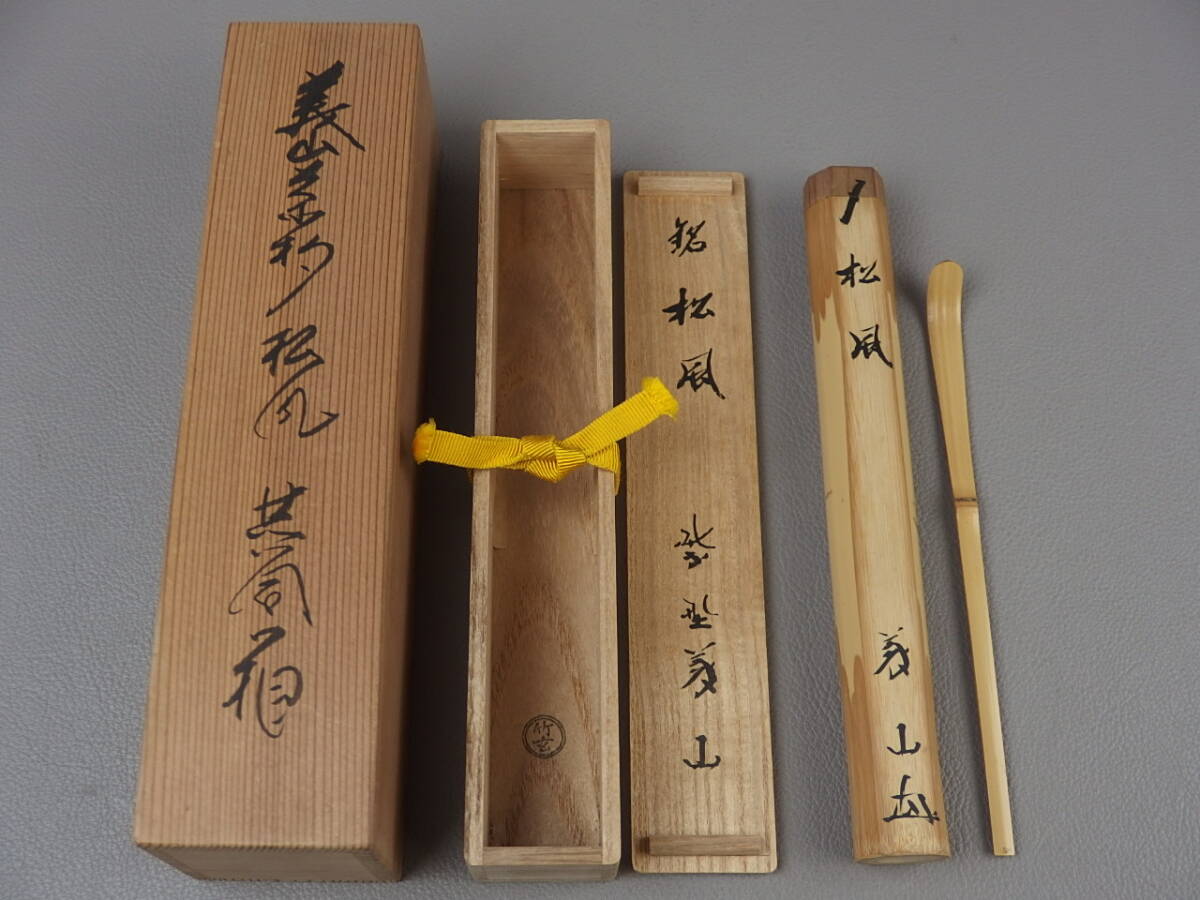 義山茶杓 松風 共筒箱
竹玄
銘 松風
紫野 義山
松風
義山